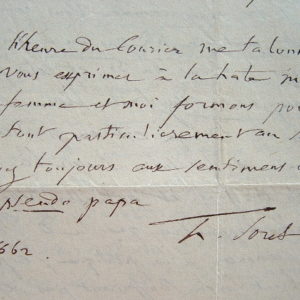 l'heure du Courier me talonn
vous exprimer à la hâte
femme et moi formons pou
tout particulièrement au
toujours aux sentiments
pseudo papa
h. Soret